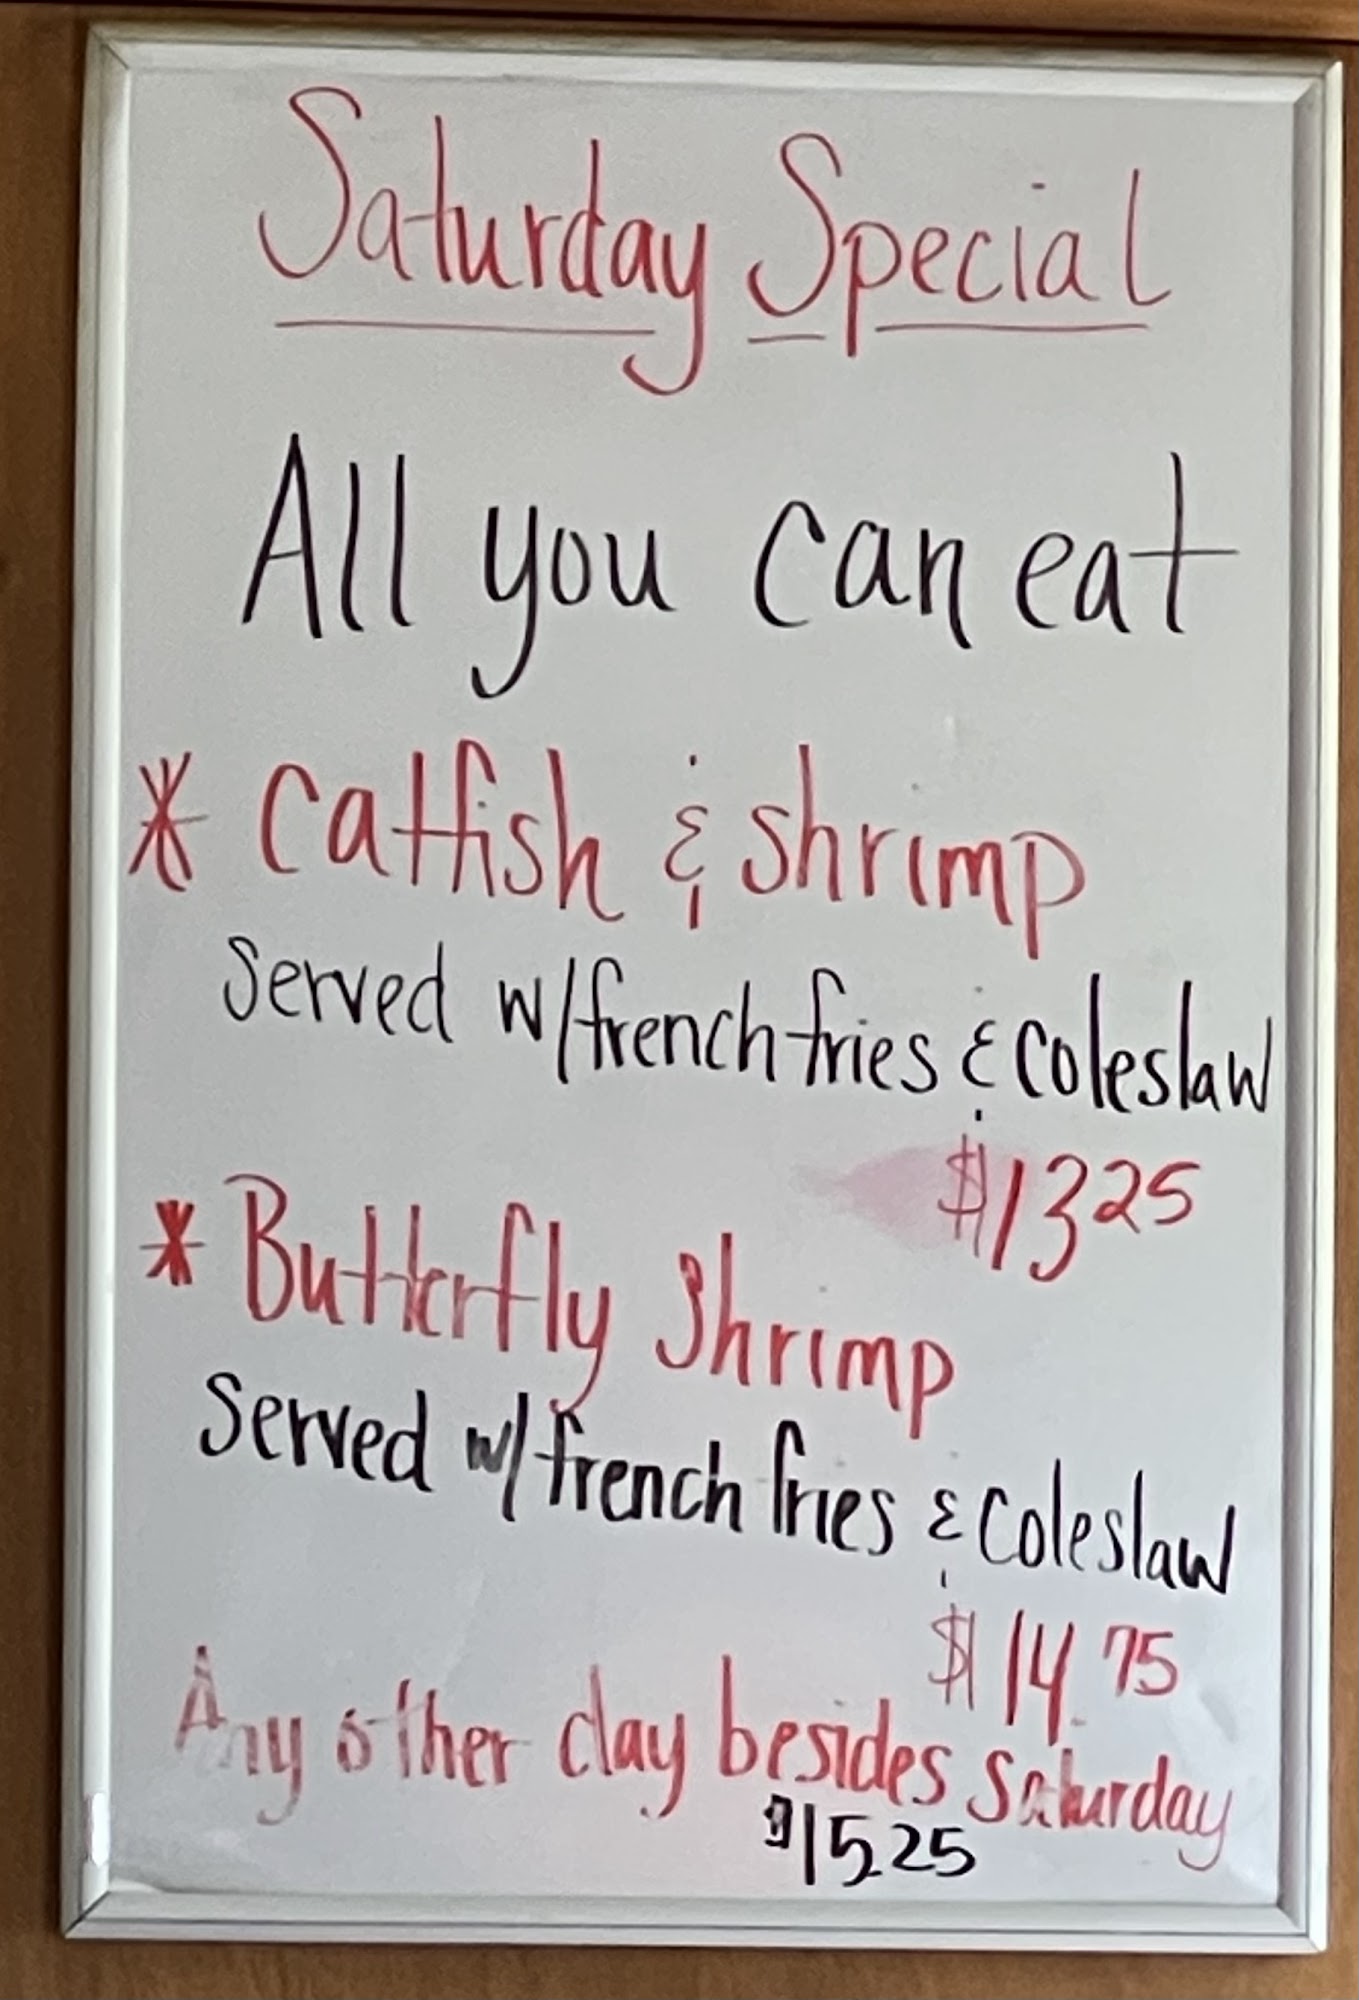 Saturday Special
All you can eat
* Catfish & shrimp
Served w/french fries & Coleslaw
$13 25
* Butterfly Shrimp
Served w/french fries & Coleslaw
$14.75
Any other day besides Saturday
$15.25